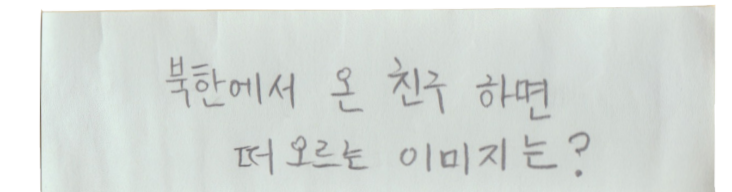 북한에서 온 친구 하면
떠오르는 이미지는?